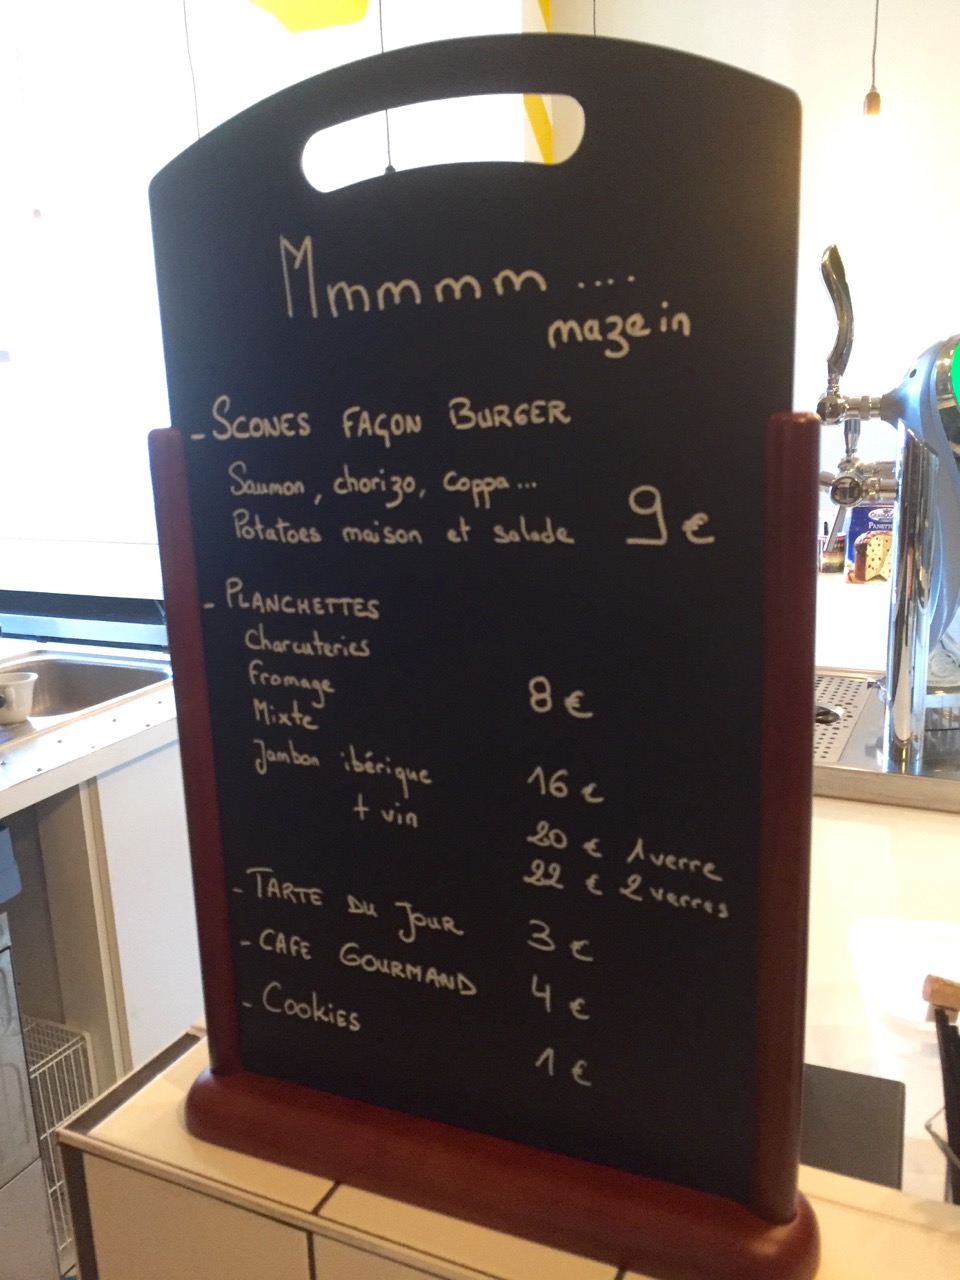 Mmmmm ....
mazein
- SCONES FAÇON BURGER
Saumon, chorizo, coppa...
Potatoes maison et salade 9 €
- PLANCHETTES
Charcuteries
Fromage 8 €
Mixte
Jambon ibérique 16 €
+ vin 20 € 1 verre
22 € 2 verres
- TARTE DU JOUR 3 €
- CAFE GOURMAND 4 €
- COOKIES 1 €